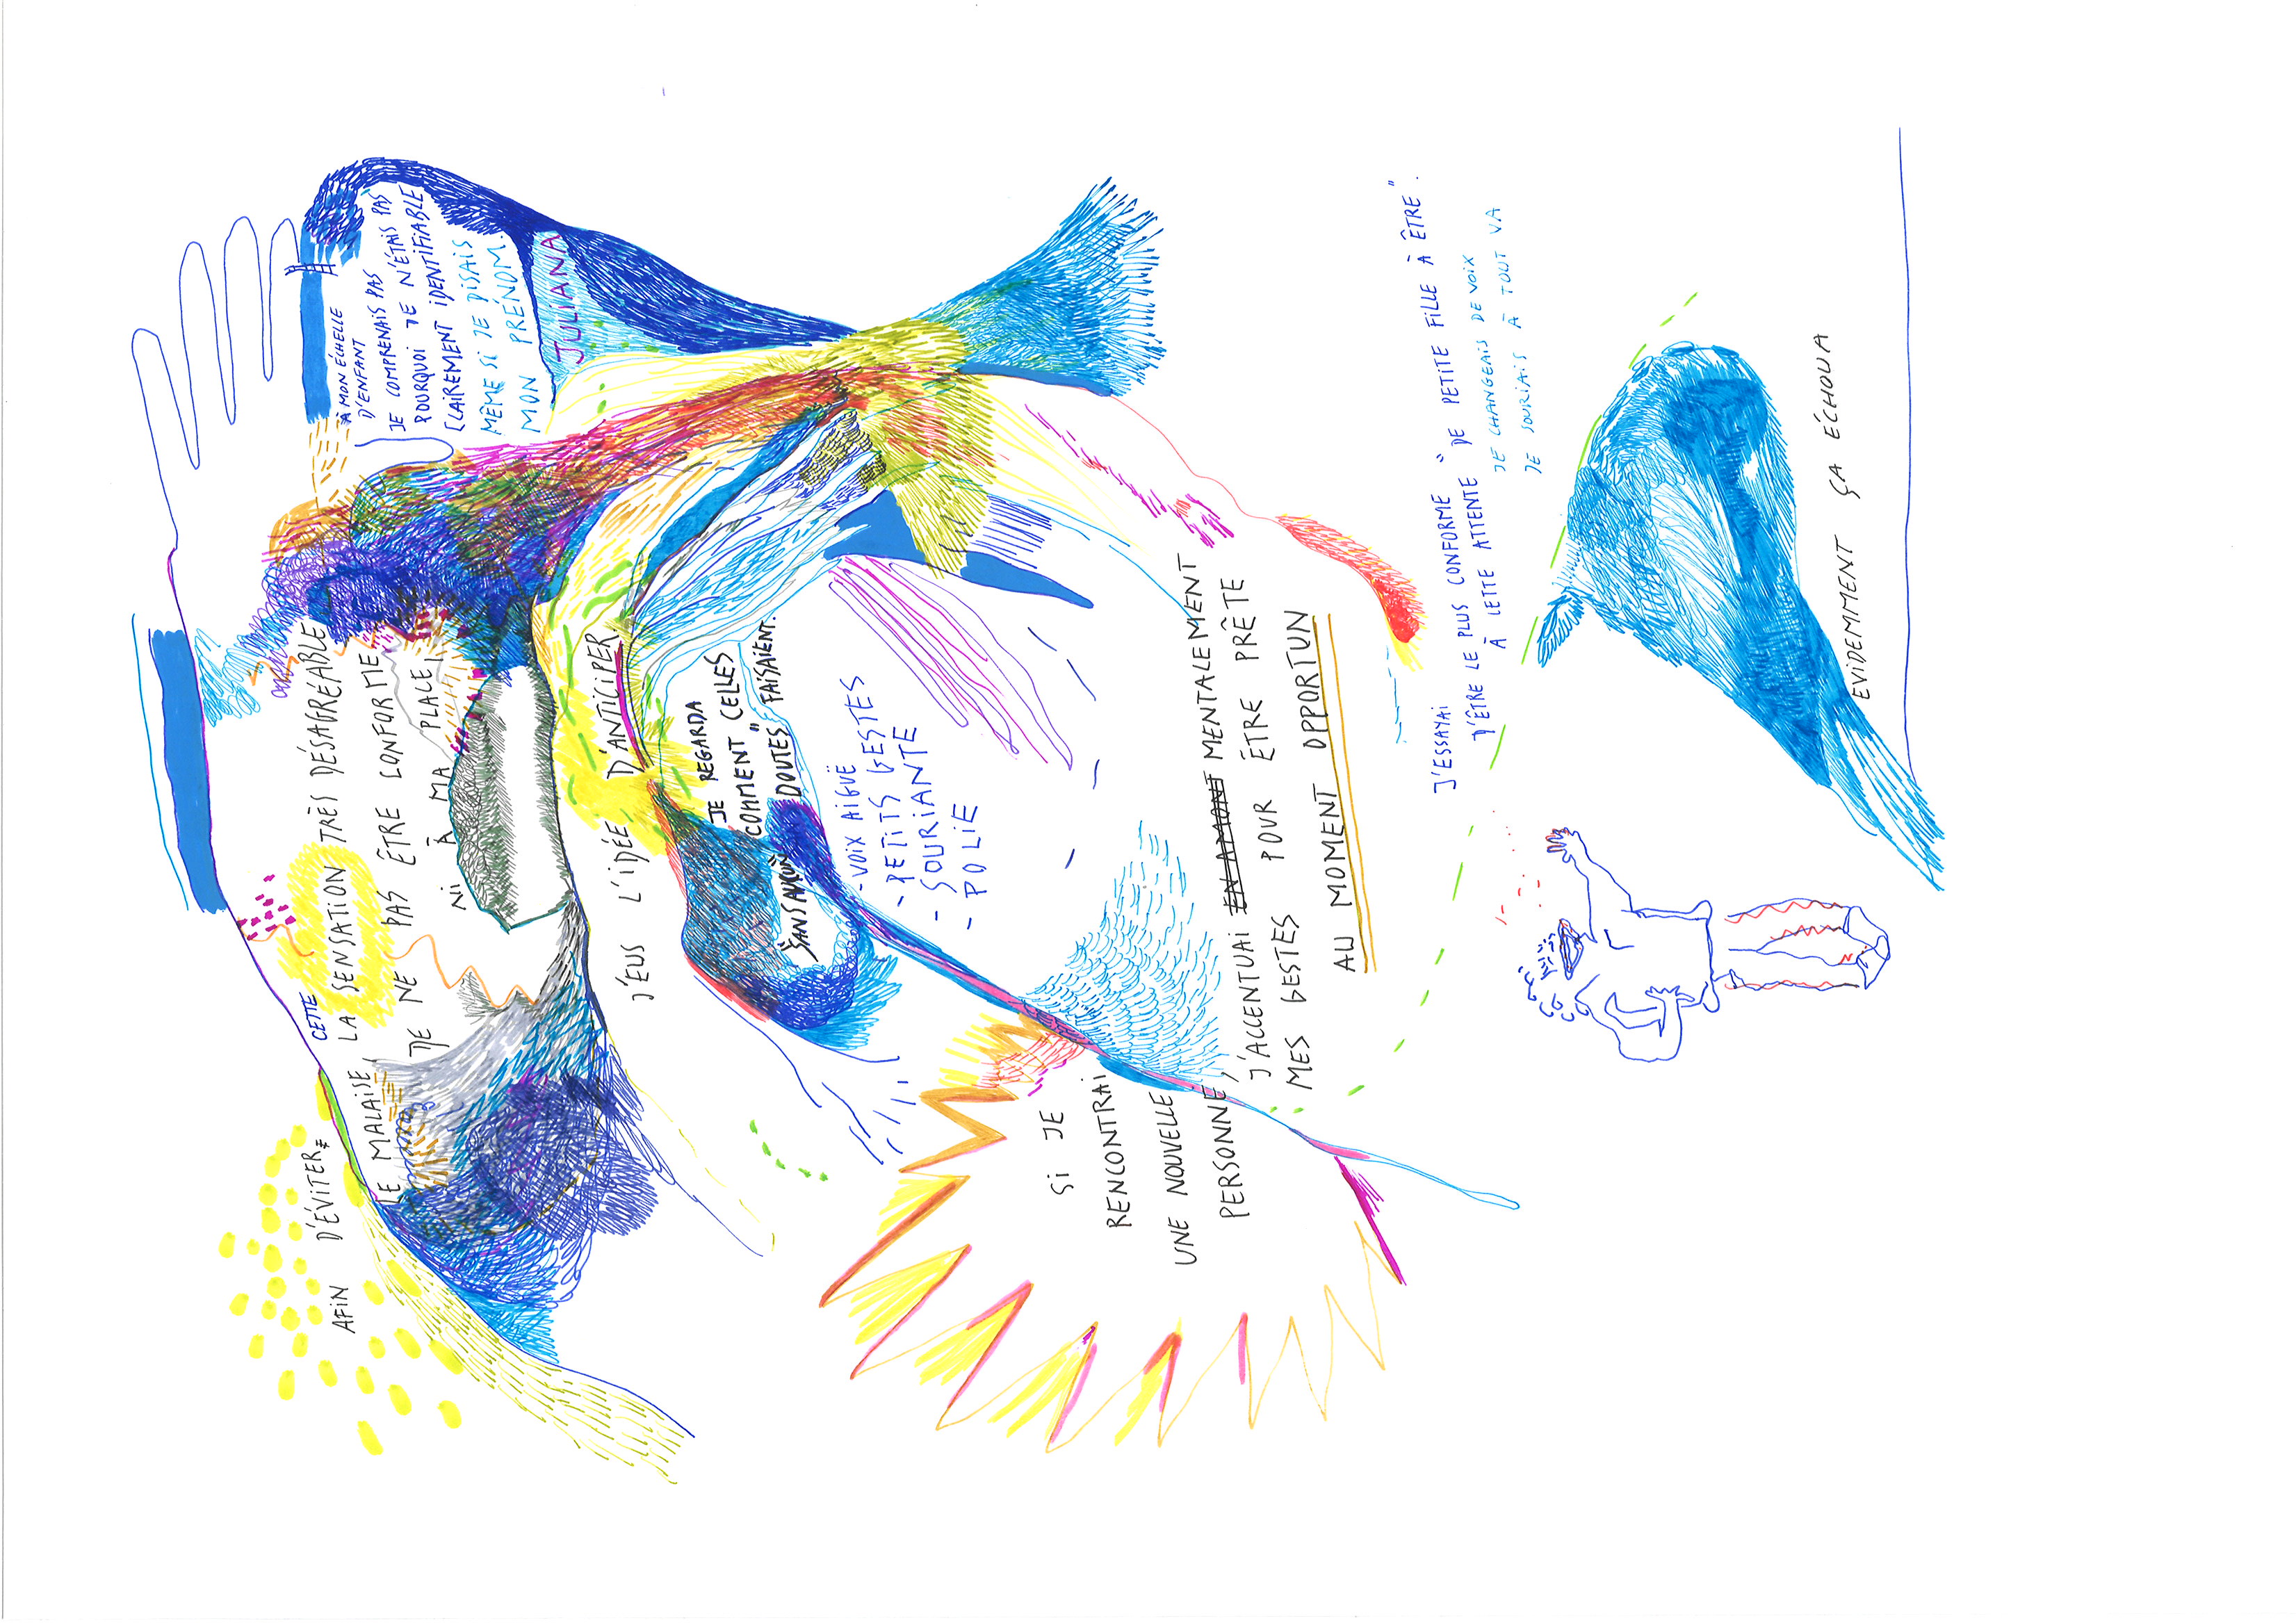 À MON ÉCHELLE
D'ENFANT
JE COMPRENAIS PAS
POURQUOI JE N'ÉTAIS PAS
CLAIREMENT IDENTIFIABLE
MÊME SI JE DISAIS
MON PRÉNOM.
JULIANA
AFIN D'ÉVITER
CETTE
LE MALAISE, LA SENSATION TRÈS DÉSAGRÉABLE
DE NE PAS ÊTRE CONFORME
NI À MA PLACE,
J'EUS L'IDÉE D'ANTICIPER
JE REGARDA
COMMENT CELLES
"SANS AUCUN DOUTES" FAISAIENT.
- VOIX AIGUË
- PETITS GESTES
- SOURIANTE
- POLIE
SI JE
RENCONTRAI
UNE NOUVELLE
PERSONNE,
J'ACCENTUAI EN AMONT MENTALEMENT
MES GESTES POUR ÊTRE PRÊTE
AU MOMENT OPPORTUN
J'ESSAYAI
D'ÊTRE LE PLUS CONFORME
À CETTE ATTENTE "DE PETITE FILLE À ÊTRE".
JE CHANGEAIS DE VOIX
JE SOURIAIS À TOUT VA
EVIDEMMENT ÇA ÉCHOUA